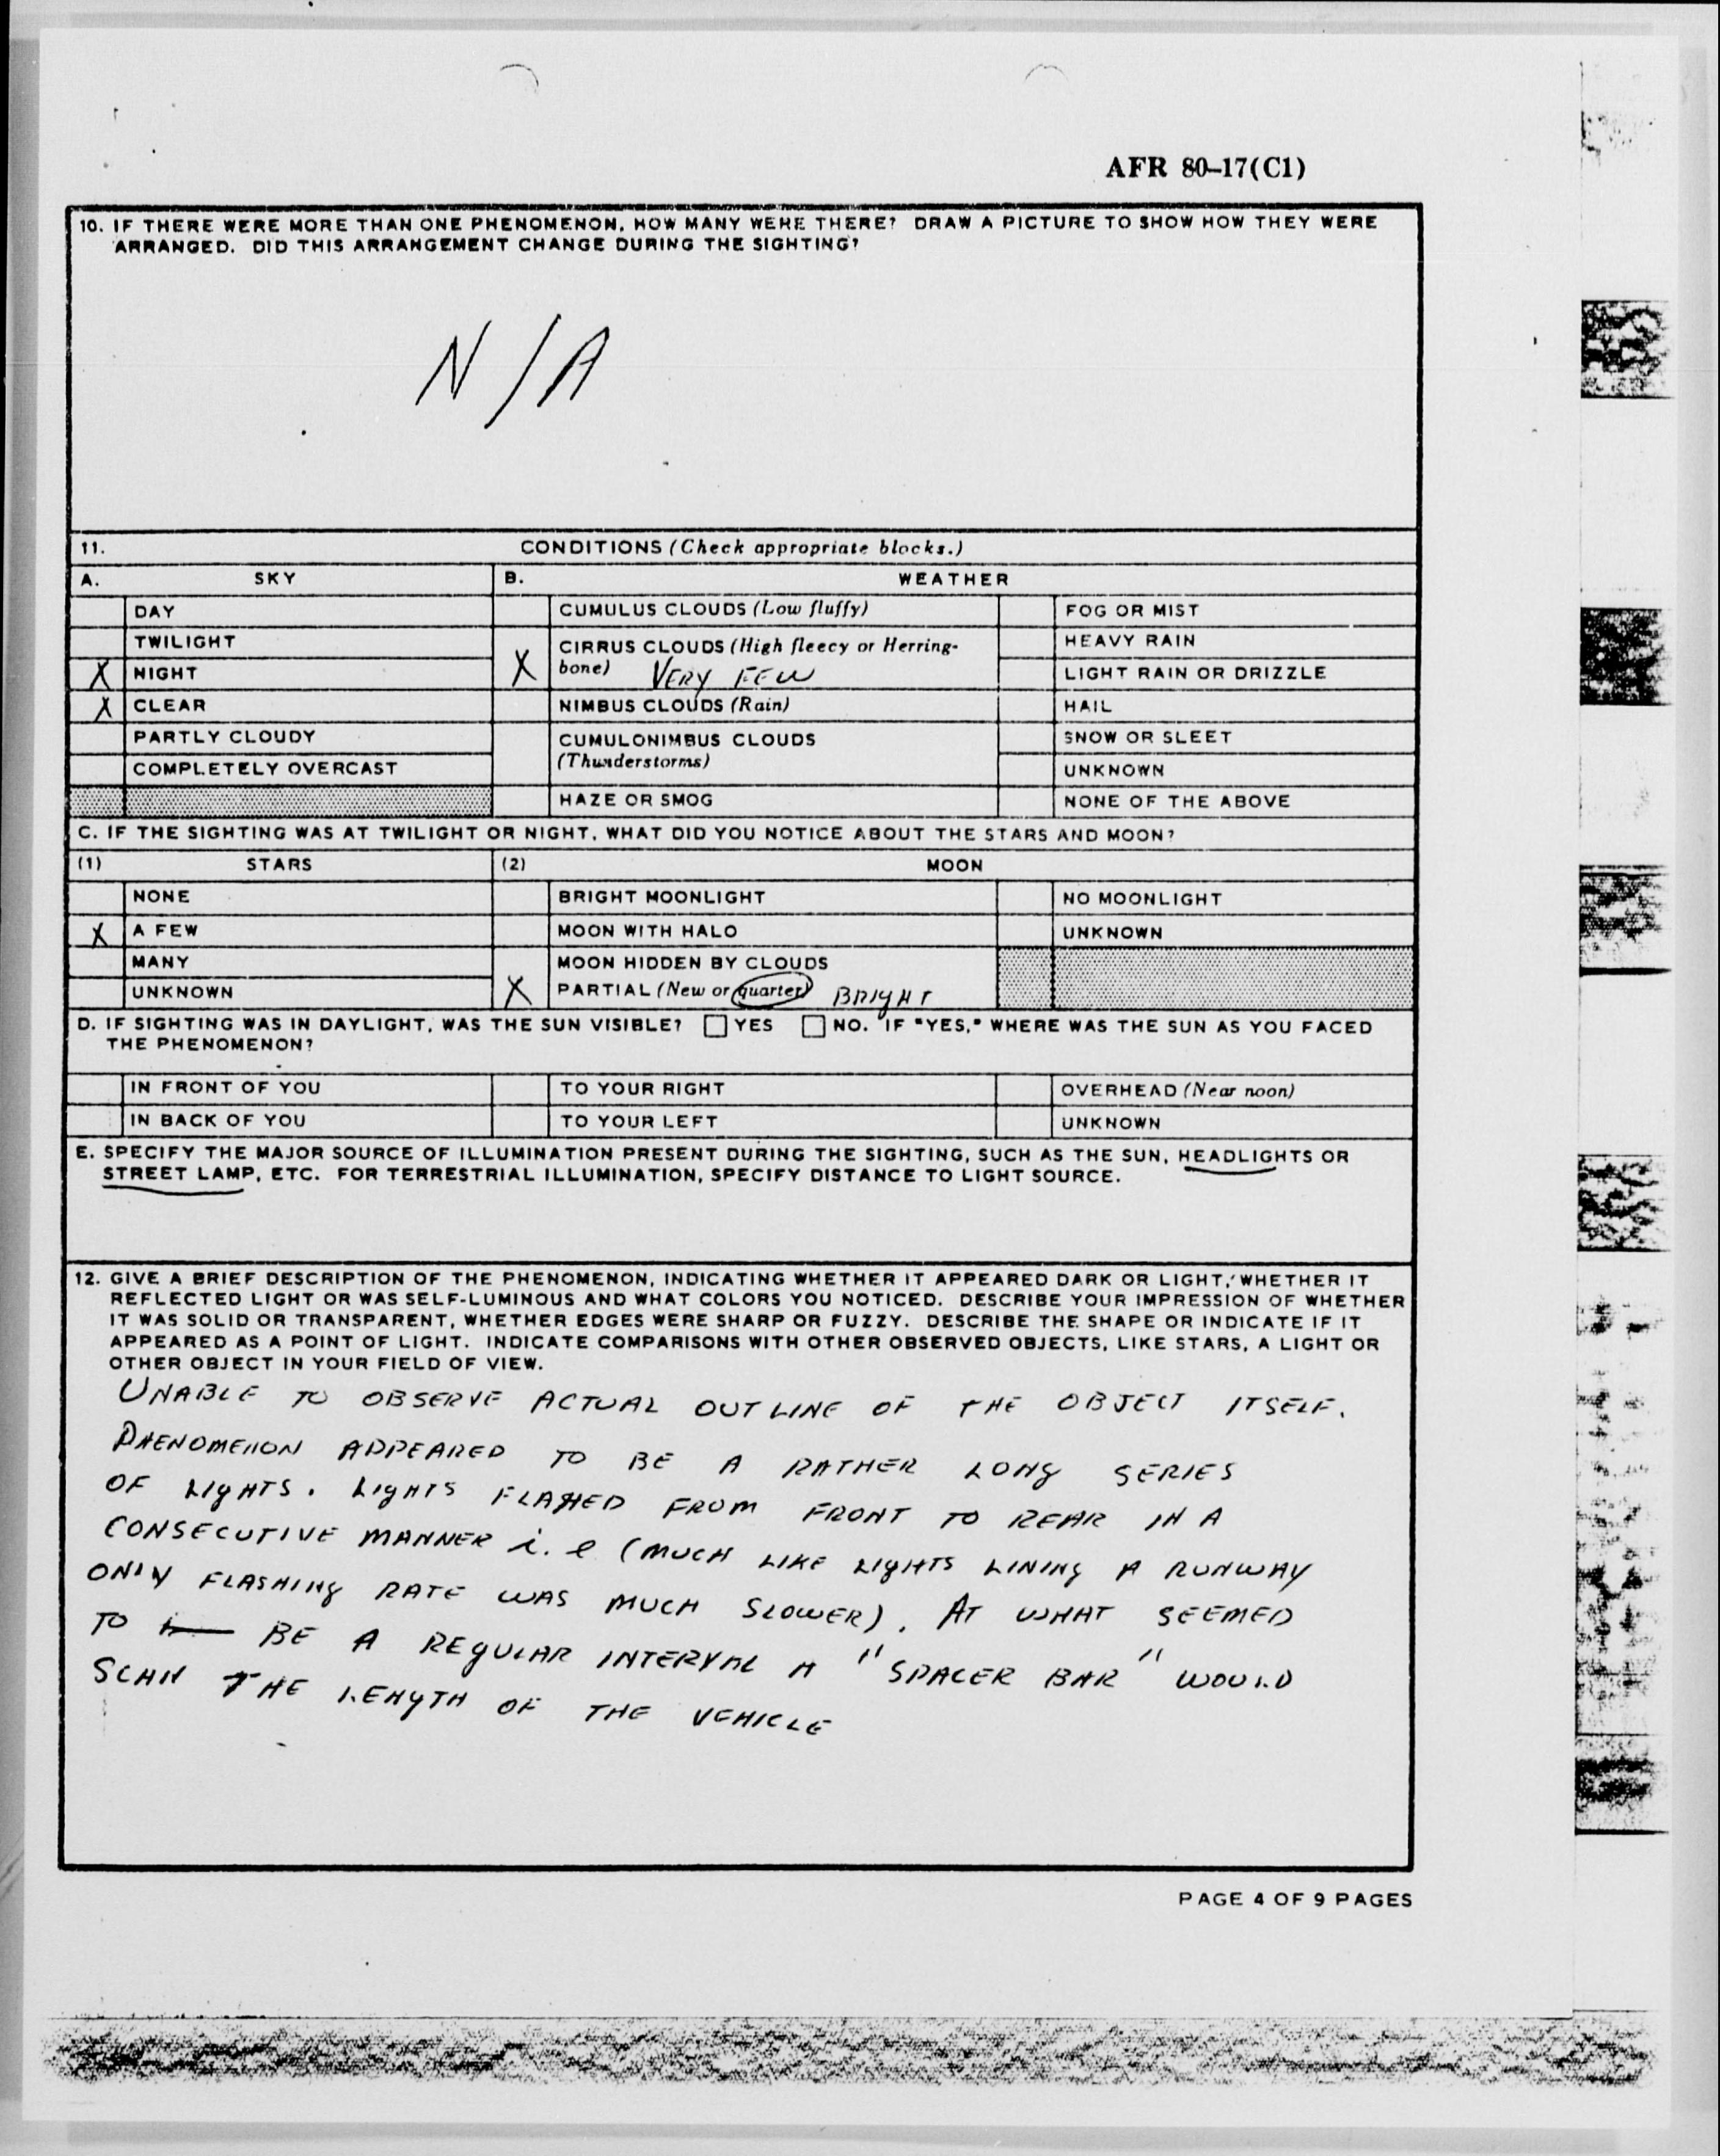 AFR 80-17(C1)
10. IF THERE WERE MORE THAN ONE PHENOMENON, HOW MANY WERE THERE? DRAW A PICTURE TO SHOW HOW THEY WERE
ARRANGED. DID THIS ARRANGEMENT CHANGE DURING THE SIGHTING?
N/A
11. CONDITIONS (Check appropriate blocks.)
A. SKY B. WEATHER
DAY CUMULUS CLOUDS (Low fluffy) FOG OR MIST
TWILIGHT CIRRUS CLOUDS (High fleecy or Herring- HEAVY RAIN
X NIGHT X bone) VERY FEW LIGHT RAIN OR DRIZZLE
X CLEAR NIMBUS CLOUDS (Rain) HAIL
PARTLY CLOUDY CUMULONIMBUS CLOUDS SNOW OR SLEET
COMPLETELY OVERCAST (Thunderstorms) UNKNOWN
HAZE OR SMOG NONE OF THE ABOVE
C. IF THE SIGHTING WAS AT TWILIGHT OR NIGHT, WHAT DID YOU NOTICE ABOUT THE STARS AND MOON?
(1) STARS (2) MOON
NONE BRIGHT MOONLIGHT NO MOONLIGHT
X A FEW MOON WITH HALO UNKNOWN
MANY MOON HIDDEN BY CLOUDS
UNKNOWN X PARTIAL (New or quarter) BRIGHT
D. IF SIGHTING WAS IN DAYLIGHT, WAS THE SUN VISIBLE? YES NO. IF "YES," WHERE WAS THE SUN AS YOU FACED
THE PHENOMENON?
IN FRONT OF YOU TO YOUR RIGHT OVERHEAD (Near noon)
IN BACK OF YOU TO YOUR LEFT UNKNOWN
E. SPECIFY THE MAJOR SOURCE OF ILLUMINATION PRESENT DURING THE SIGHTING, SUCH AS THE SUN, HEADLIGHTS OR
STREET LAMP, ETC. FOR TERRESTRIAL ILLUMINATION, SPECIFY DISTANCE TO LIGHT SOURCE.
12. GIVE A BRIEF DESCRIPTION OF THE PHENOMENON, INDICATING WHETHER IT APPEARED DARK OR LIGHT, WHETHER IT
REFLECTED LIGHT OR WAS SELF-LUMINOUS AND WHAT COLORS YOU NOTICED. DESCRIBE YOUR IMPRESSION OF WHETHER
IT WAS SOLID OR TRANSPARENT, WHETHER EDGES WERE SHARP OR FUZZY. DESCRIBE THE SHAPE OR INDICATE IF IT
APPEARED AS A POINT OF LIGHT. INDICATE COMPARISONS WITH OTHER OBSERVED OBJECTS, LIKE STARS, A LIGHT OR
OTHER OBJECT IN YOUR FIELD OF VIEW.
UNABLE TO OBSERVE ACTUAL OUTLINE OF THE OBJECT ITSELF.
PHENOMENON APPEARED TO BE A RATHER LONG SERIES
OF LIGHTS. LIGHTS FLASHED FROM FRONT TO REAR IN A
CONSECUTIVE MANNER i.e (MUCH LIKE LIGHTS LINING A RUNWAY
ONLY FLASHING RATE WAS MUCH SLOWER). AT WHAT SEEMED
TO BE A REGULAR INTERVAL A "SPACER BAR" WOULD
SCAN THE LENGTH OF THE VEHICLE
PAGE 4 OF 9 PAGES